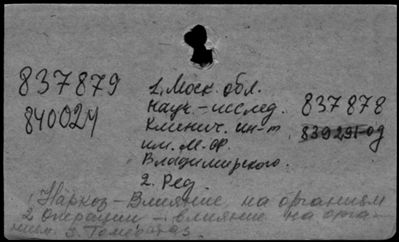 837879
840024
1. Моск. обл.
науч.-исслед.
клинич. ин-т
им. М.Ф.
Владимирского.
2. Ред.
837878
839291-09
Наркоз - Влияние на организм
2 Операции - влияние на орга-
низм. 3.